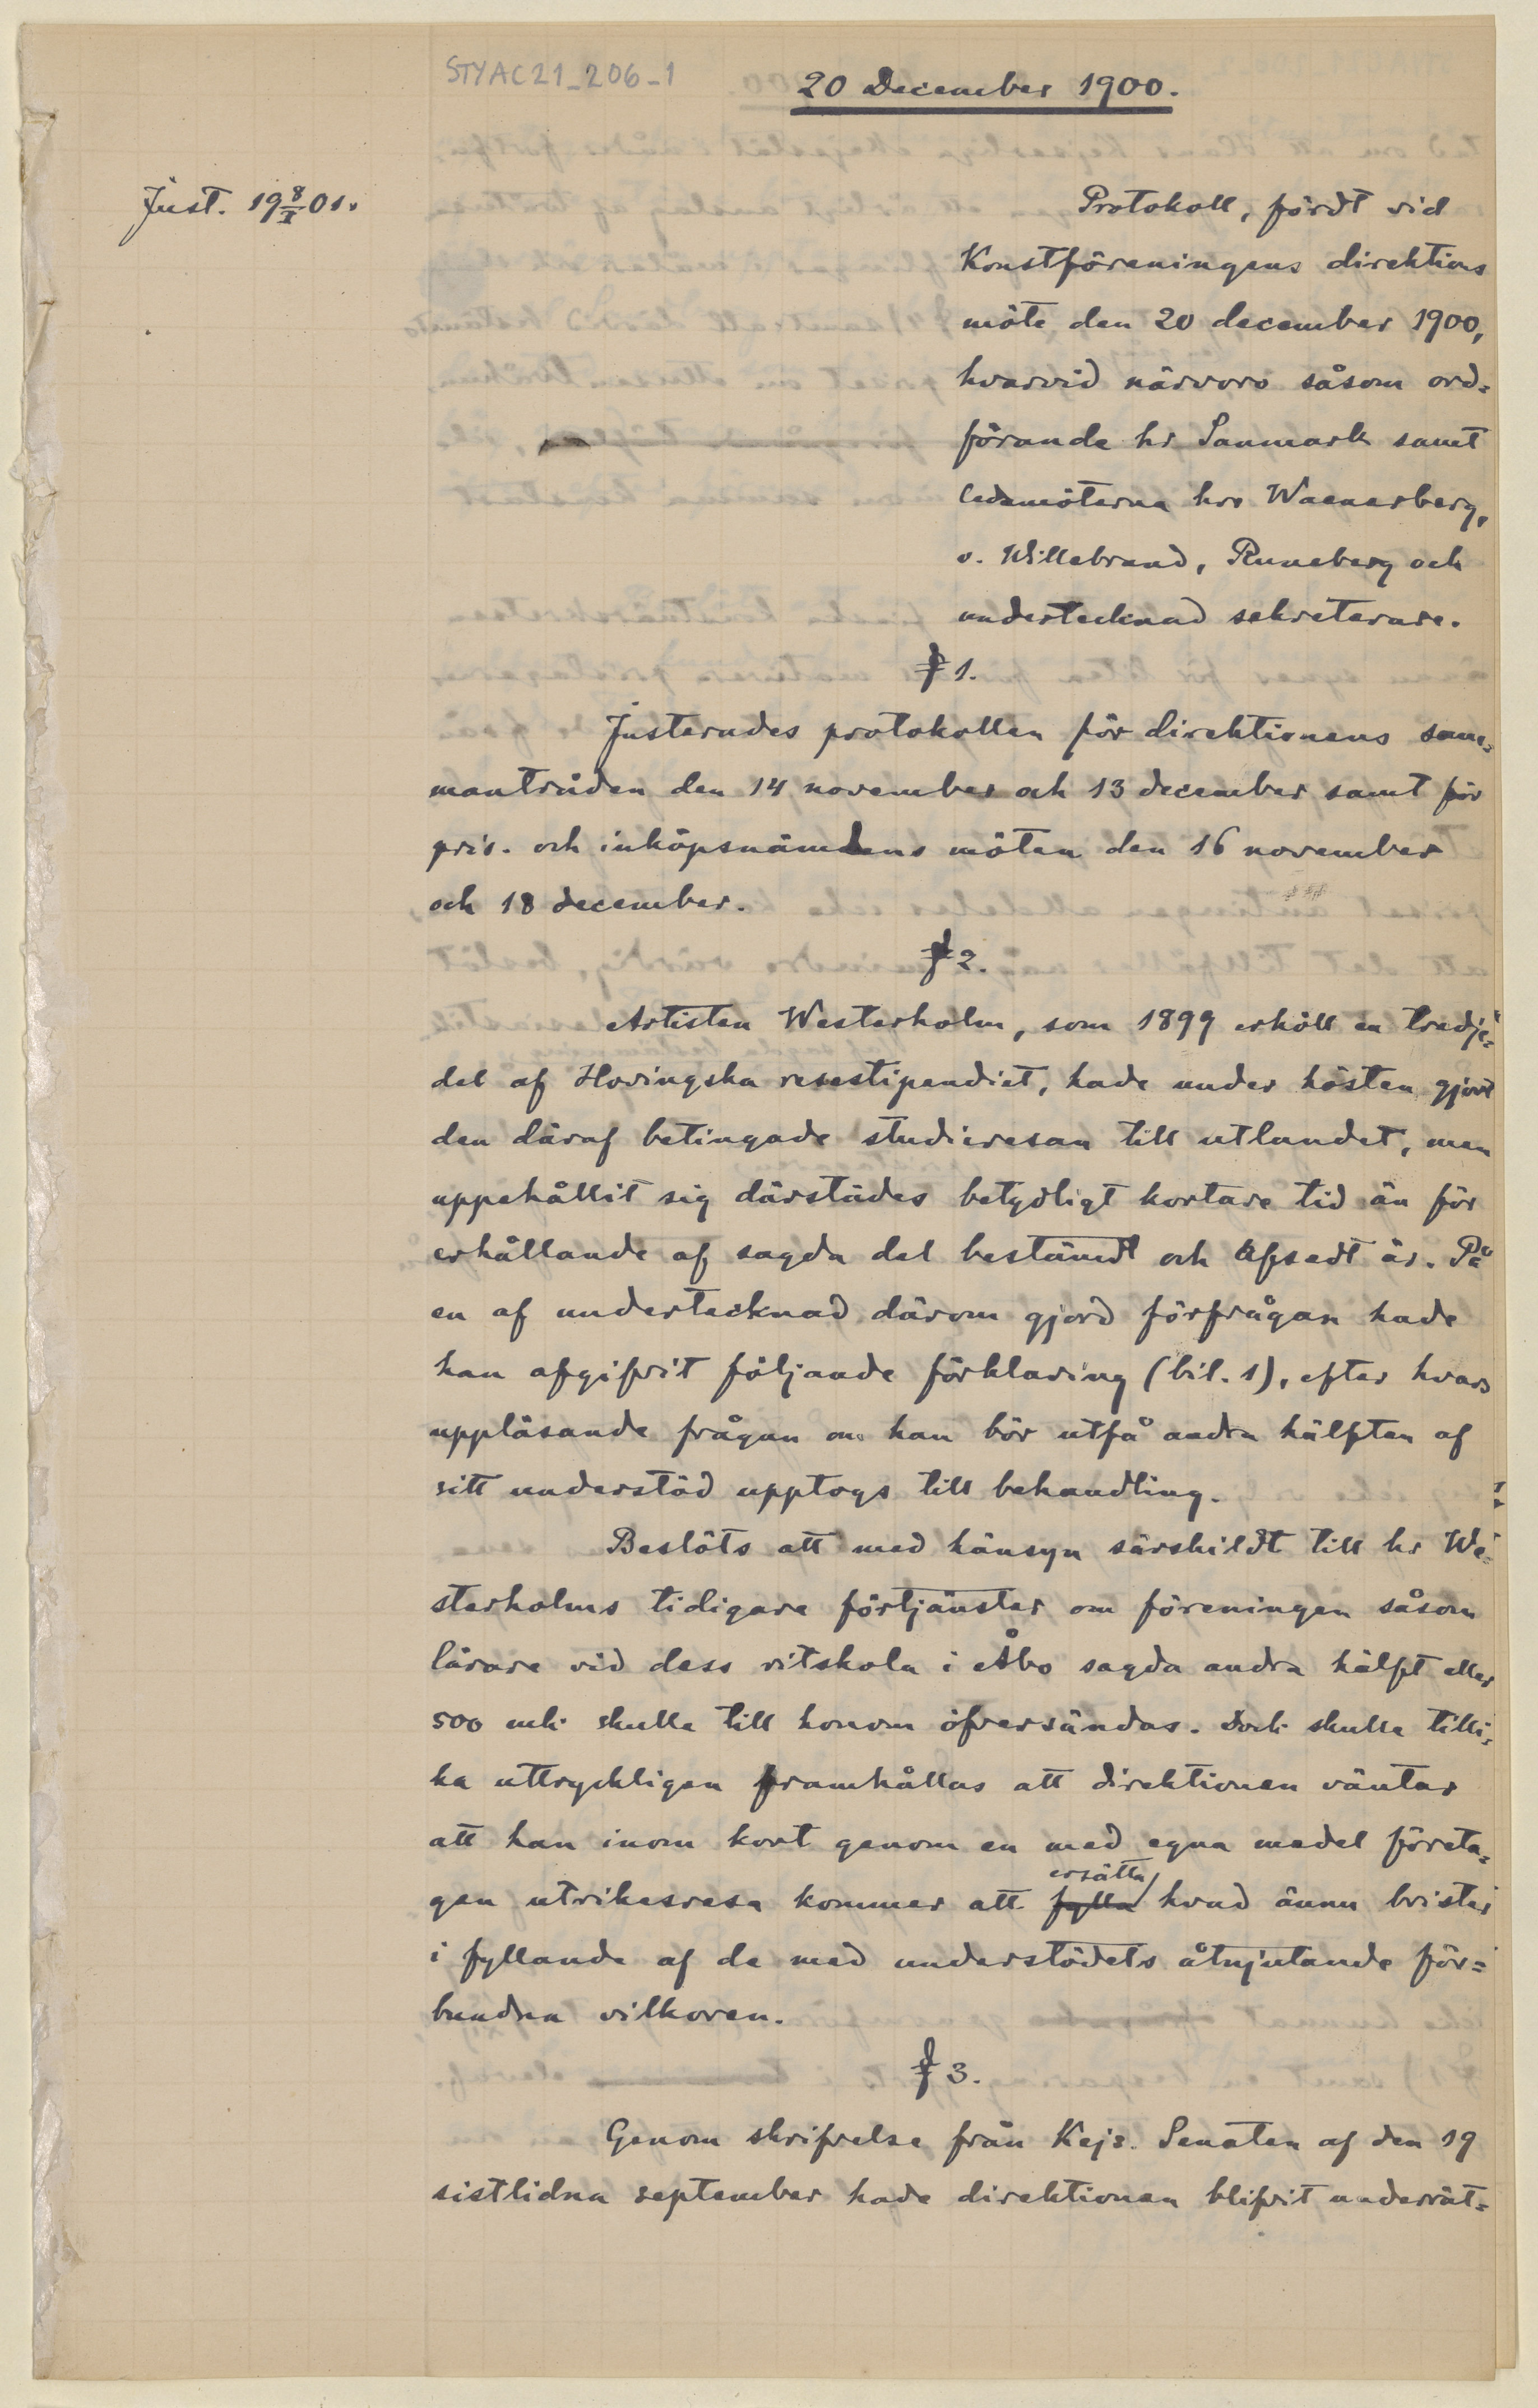 STYAC21_206_1
20 December 1900.
Just. 19 8/I 01.
Protokoll, fördt vid
Konstföreningens direktions
möte den 20 december 1900,
hvarvid närvoro såsom ord=
förande hr Sanmark samt
ledamöterna hrr Waenerberg,
v. Willebrand, Runeberg och
undertecknad sekreterare.
§ 1.
Justerades protokollen för direktionens sam=
manträden den 14 november och 13 december samt för
pris- och inköpsnämdens möten den 16 november
och 18 december.
§ 2.
Artisten Westerholm, som 1899 erhöll en tredje=
del af Hovingska resestipendiet, hade under hösten gjort
den däraf betingade studieresan till utlandet, men
uppehållit sig därstädes betydligt kortare tid än för
erhållande af sagda del bestämdt och afsedt är. På
en af undertecknad därom gjord förfrågan hade
han afgifvit följande förklaring (bil. 1), efter hvars
uppläsande frågan om han bör utfå andra hälften af
sitt understöd upptogs till behandling.
Beslöts att med hänsyn särskildt till hr We=
sterholms tidigare förtjänster om föreningen såsom
lärare vid dess ritskola i Åbo sagda andra hälft eller
500 mk skulle till honom öfversändas. Dock skulle tilli=
ka uttryckligen framhållas att direktionen väntar
att han inom kort genom en med egna medel företa=
gen utrikesresa kommer att fylla ersätta hvad ännu brister
i fyllande af de med understödets åtnjutande för=
bundna vilkoren.
§ 3.
Genom skrifvelse från Kejs. Senaten af den 19
sistlidna september hade direktionen blifvit underrät=